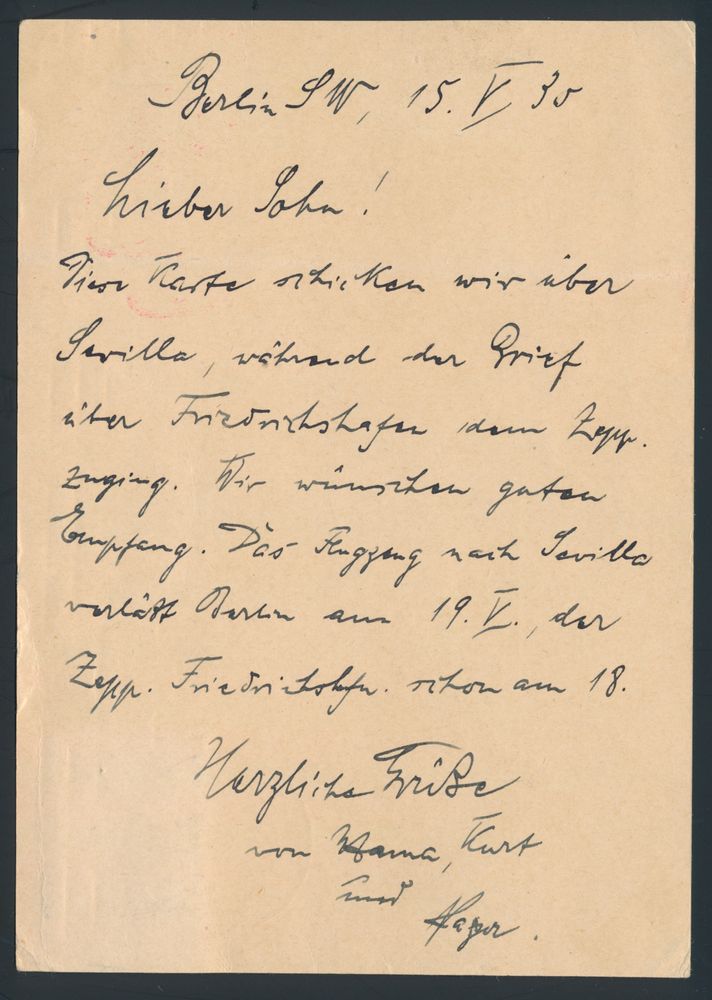 Berlin SW, 15. V 30
Lieber Sohn!
Diese Karte schicken wir über
Sevilla, während der Brief
über Friedrichshafen dem Zepp.
zuging. Wir wünschen guten
Empfang. Das Flugzeug nach Sevilla
verläßt Berlin am 19. V., der
Zepp. Friedrichshfn. schon am 18.
Herzliche Grüße
von Mama, Kurt
und